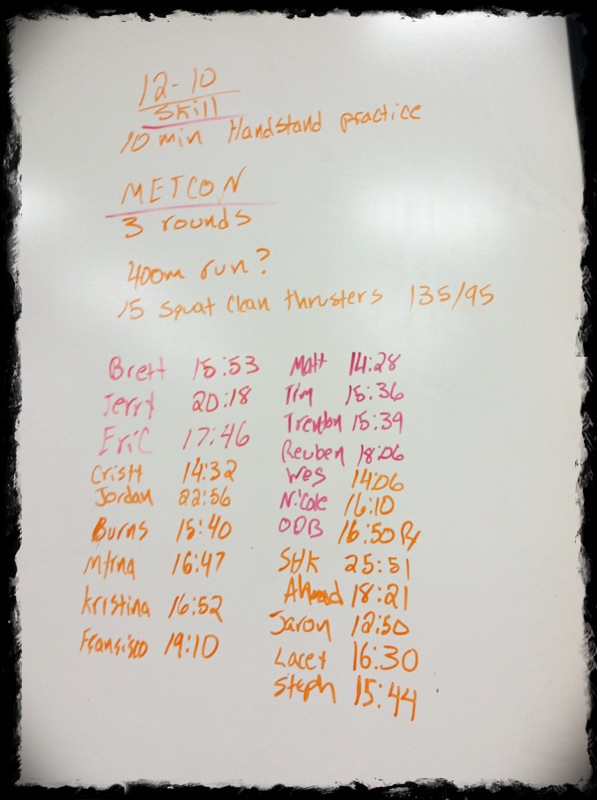 12-10
Skill
10 min Handstand practice
METCON
3 rounds
400m run?
15 Squat Clean thrusters 135/95
Brett 15:53
Jerry 20:18
Eric 17:46
14:32
Jordan 22:56
Burns 15:40
16:47
Kristina 16:52
Fransisco 19:10
Matt 14:28
Tim 15:36
Trenton 15:39
Reuben 18:06
Wes 14:06
Nicole 16:10
ODB 16:50 Rx
25:51
18:21
Jaron 12:50
Lacey 16:30
Steph 15:44